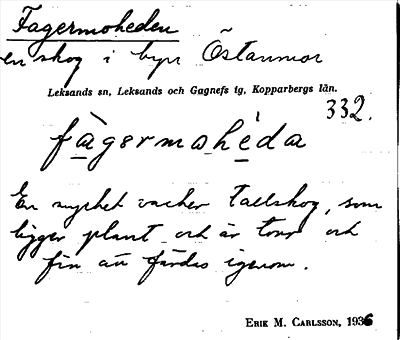 Fagermoheden
en skog i byn Östanmor
Leksands sn, Leksands och Gagnefs tg, Kopparbergs län.
332.
fàgermohéda
En mycket vacker tallskog, som
ligger plant och är torr och
fin att färdas igenom.
ERIK M. CARLSSON, 1936